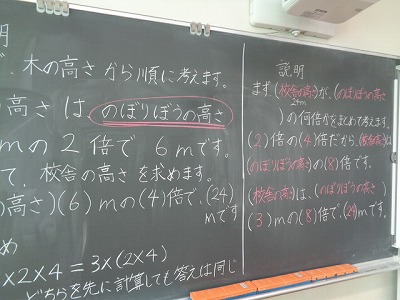 明
木の高さから順に考えます。
高さは、のぼりぼうの高さ
mの2倍で6mです。
て 校舎の高さを求めます。
高さ)(6)mの(4)倍で、(24)
mです
め
×2×4=3×(2×4)
どちらを先に計算しても答えは同じ
説明
まず(校舎の高さ)が、(のぼりぼうの高さ
24m
)の何倍かをまとめて考えます。
(2)倍の(4)倍だから、(校舎の高さ)は
(のぼりぼうの高さ)の(8)倍です。
(校舎の高さ)は、(のぼりぼうの高さ)
(3)mの(8)倍で(24)mです。